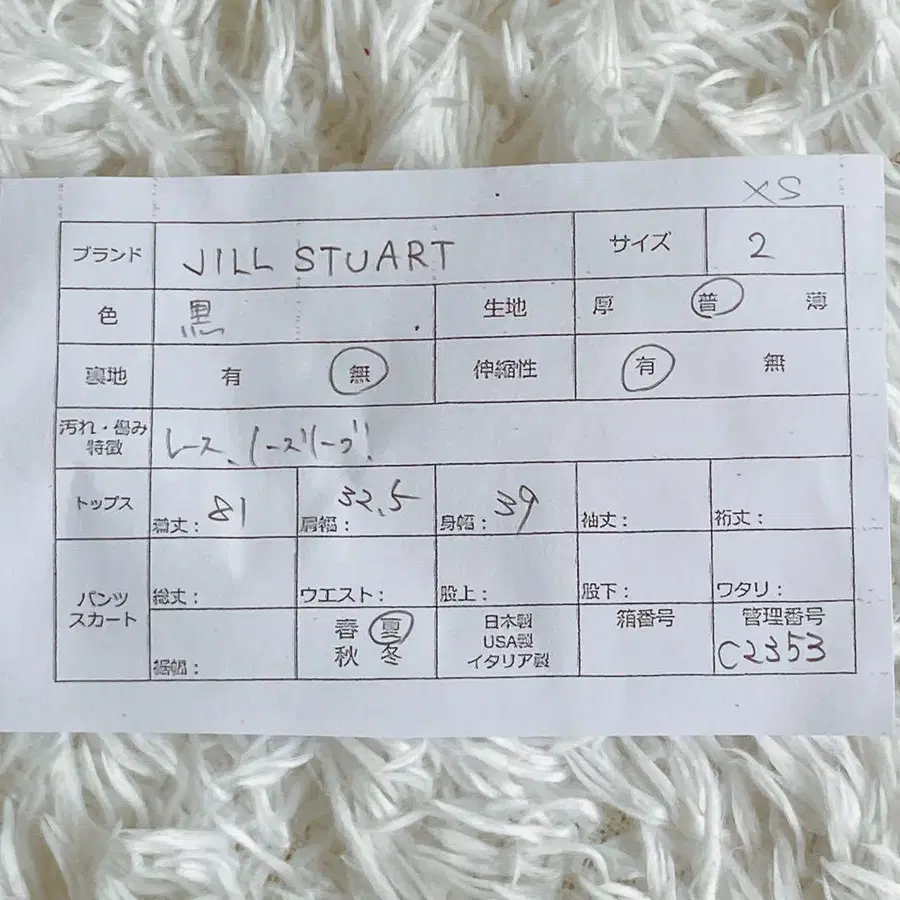 XS
ブランド JILL STUART サイズ 2
色 黒 生地 厚 普 薄
裏地 有 無 伸縮性 有 無
汚れ・傷み
特徴 レース、ノースリーブ
トップス 着丈： 81 肩幅： 32.5 身幅： 39 袖丈： 裄丈：
パンツ
スカート 総丈： ウエスト： 股上： 股下： ワタリ：
裾幅： 春 夏 日本製 箱番号 管理番号
秋 冬 USA製 C2353
イタリア製